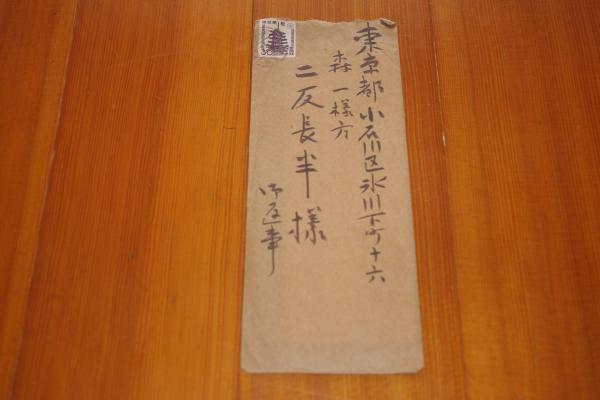 東京都小石川区氷川下町十六
森一様方
二反長半様
御返事